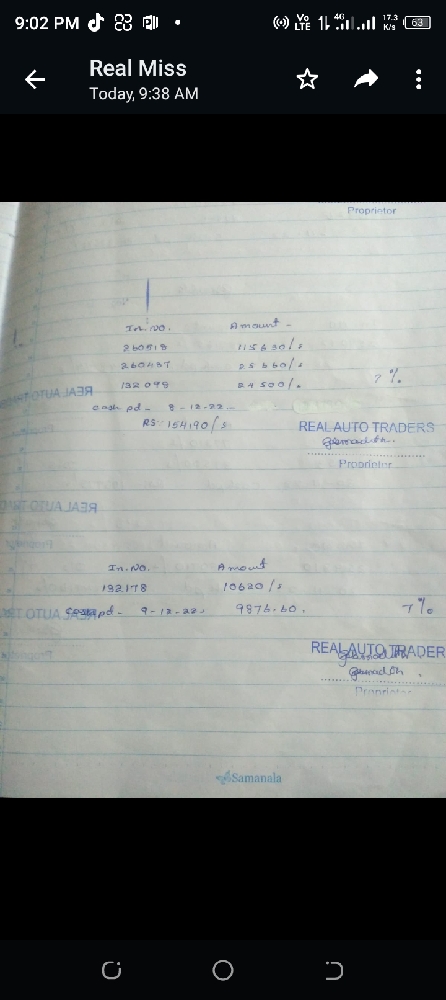 9:02 PM
Vo LTE 4G 17.3 K/s 63
Real Miss
Today, 9:38 AM
Proprietor
In. No. Amount -
115630/=
25660/=
132098 24500/=
7%
cash pd - 8-12-22
RS: 154190/=
REAL AUTO TRADERS
Proprietor
In. No. Amount
132178 10620/=
pd - 9-12-22. 9876.60. 7%
REAL AUTO TRADER
Proprietor
Samanala